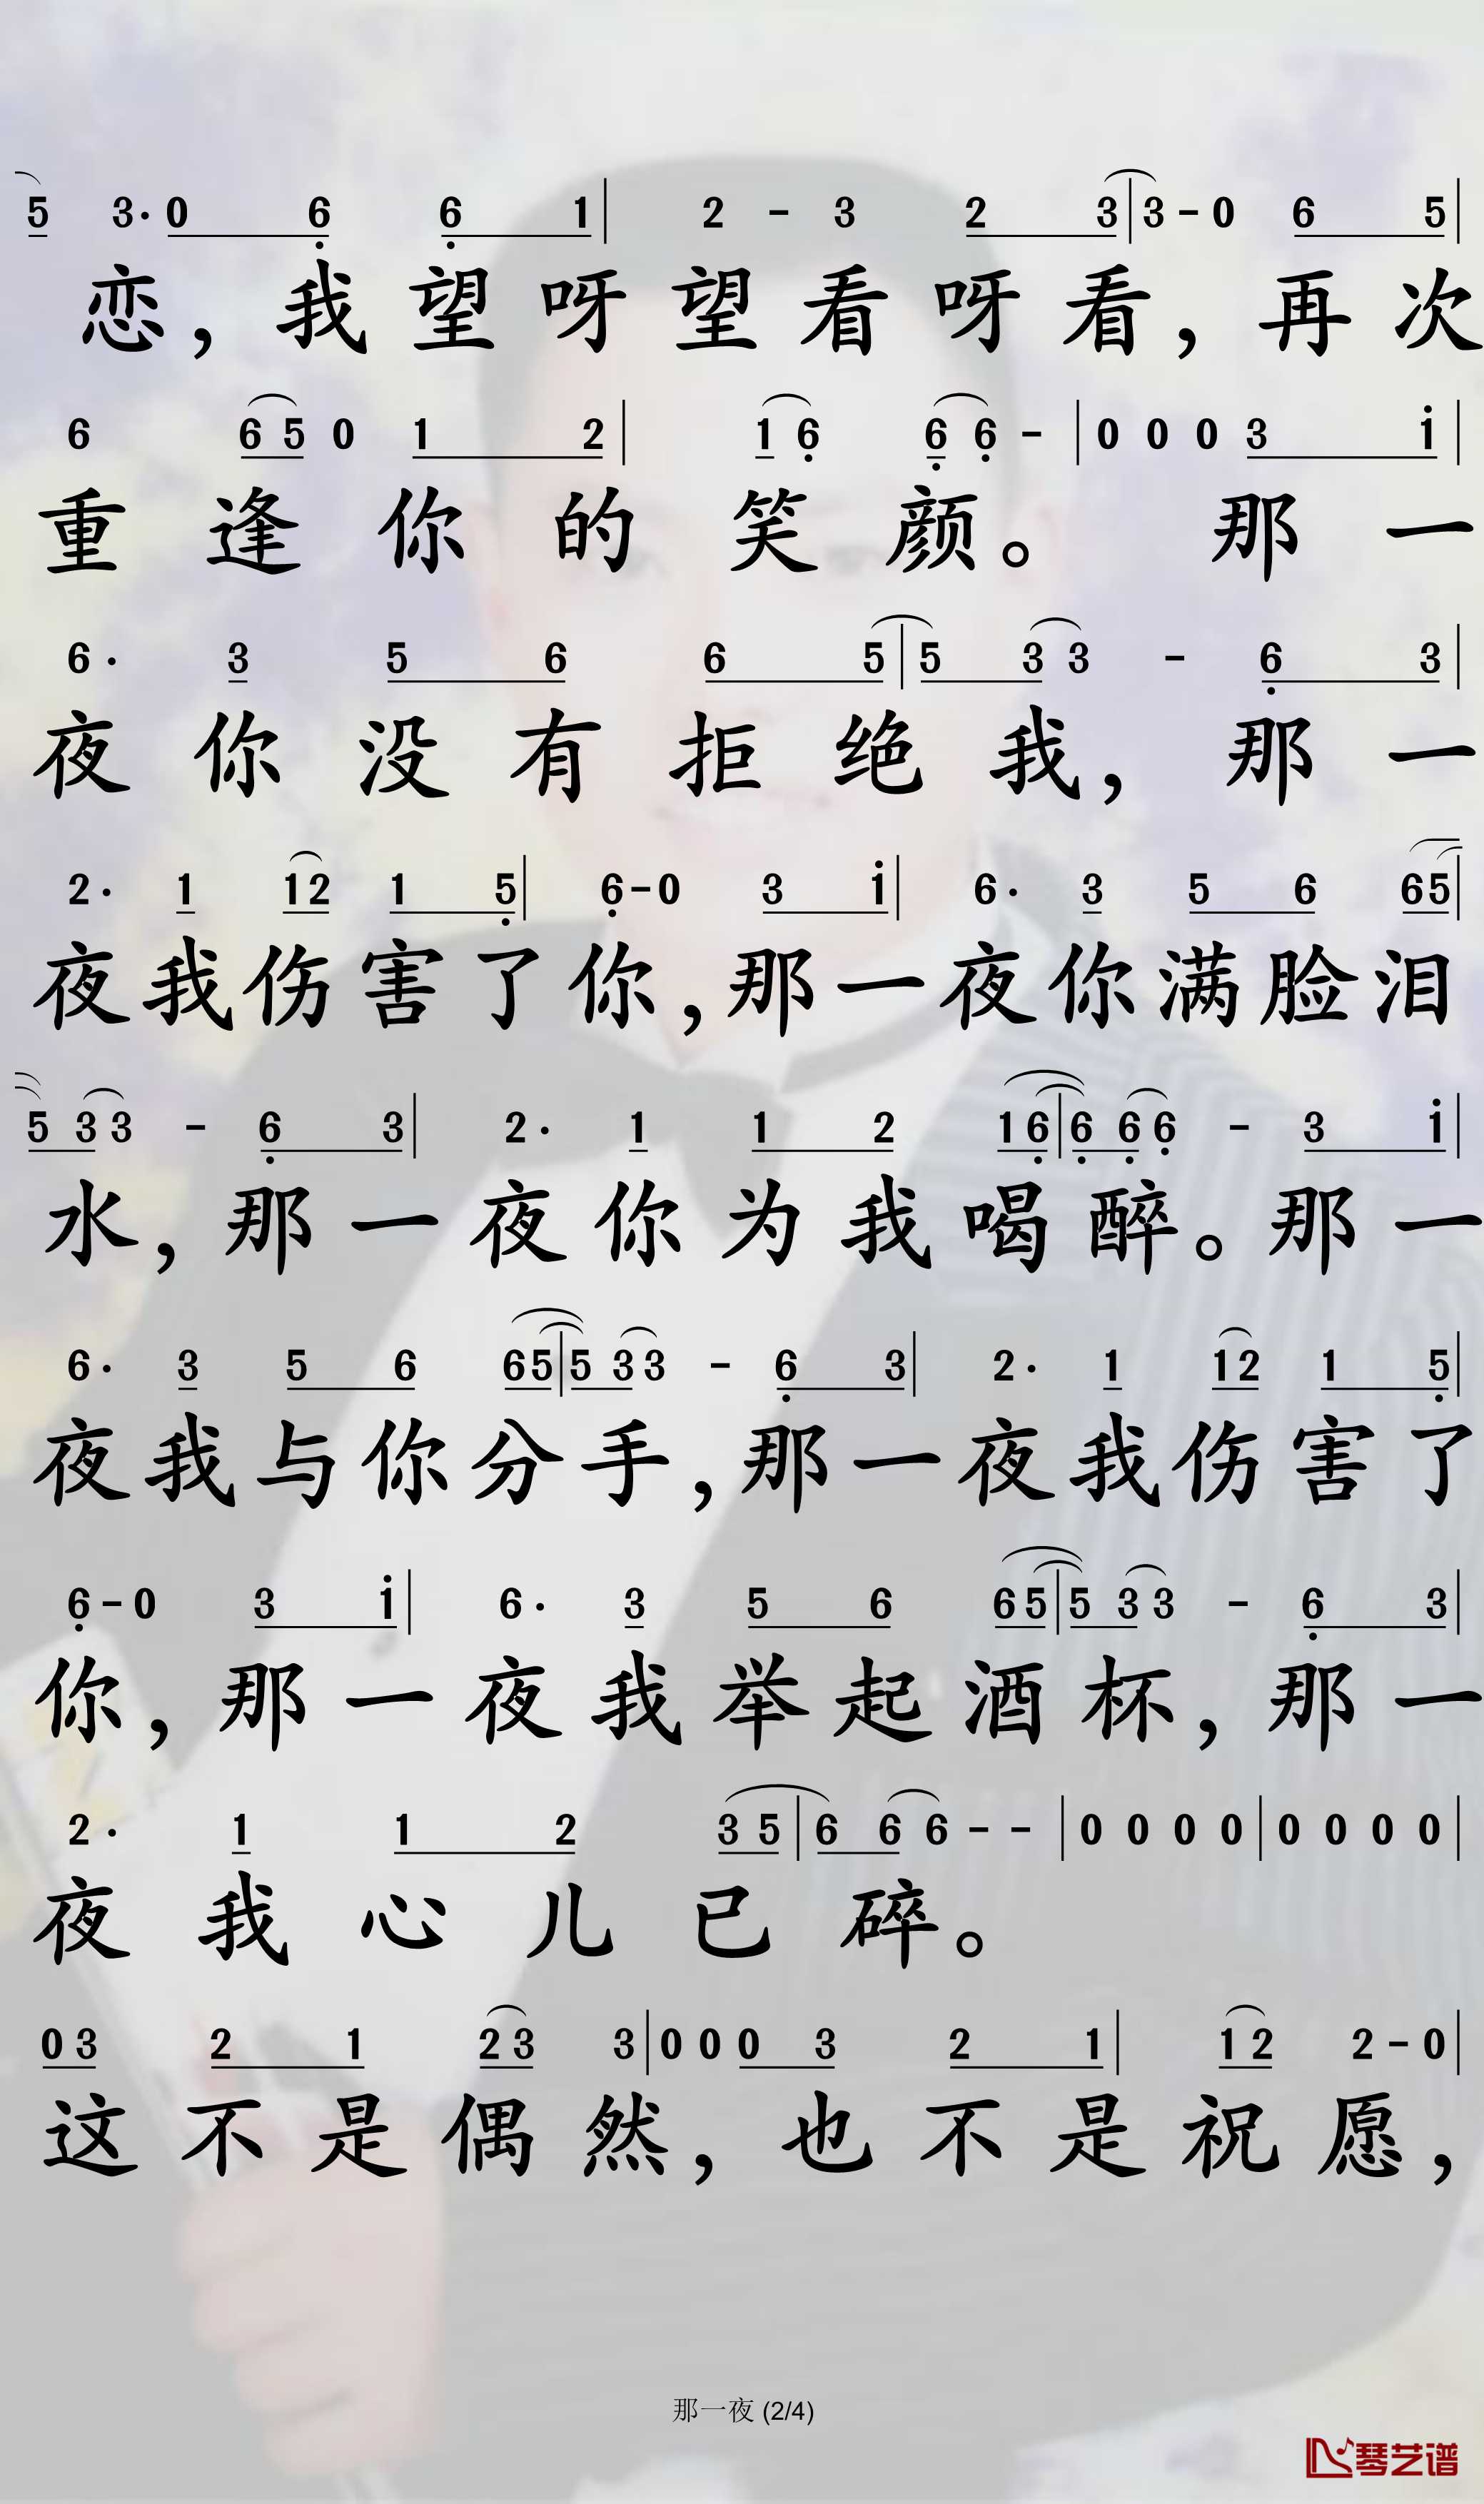 5 3· 0 6 6 1 | 2 - 3 2 3 | 3 - 0 6 5 |
恋，我望呀望看呀看，再次
6 6 5 0 1 2 | 1 6 6 6 - | 0 0 0 3 1 |
重逢你的笑颜。那一
6· 3 5 6 6 5 | 5 3 3 - 6 3 |
夜你没有拒绝我，那一
2· 1 1 2 1 5 | 6 - 0 3 1 | 6· 3 5 6 6 5 |
夜我伤害了你，那一夜你满脸泪
5 3 3 - 6 3 | 2· 1 1 2 1 6 | 6 6 6 - 3 1 |
水，那一夜你为我喝醉。那一
6· 3 5 6 6 5 | 5 3 3 - 6 3 | 2· 1 1 2 1 5 |
夜我与你分手，那一夜我伤害了
6 - 0 3 1 | 6· 3 5 6 6 5 | 5 3 3 - 6 3 |
你，那一夜我举起酒杯，那一
2· 1 1 2 3 5 | 6 6 6 - - | 0 0 0 0 | 0 0 0 0 |
夜我心儿已碎。
0 3 2 1 2 3 3 | 0 0 0 3 2 1 | 1 2 2 - 0 |
这不是偶然，也不是祝愿，
那一夜 (2/4)
琴艺谱